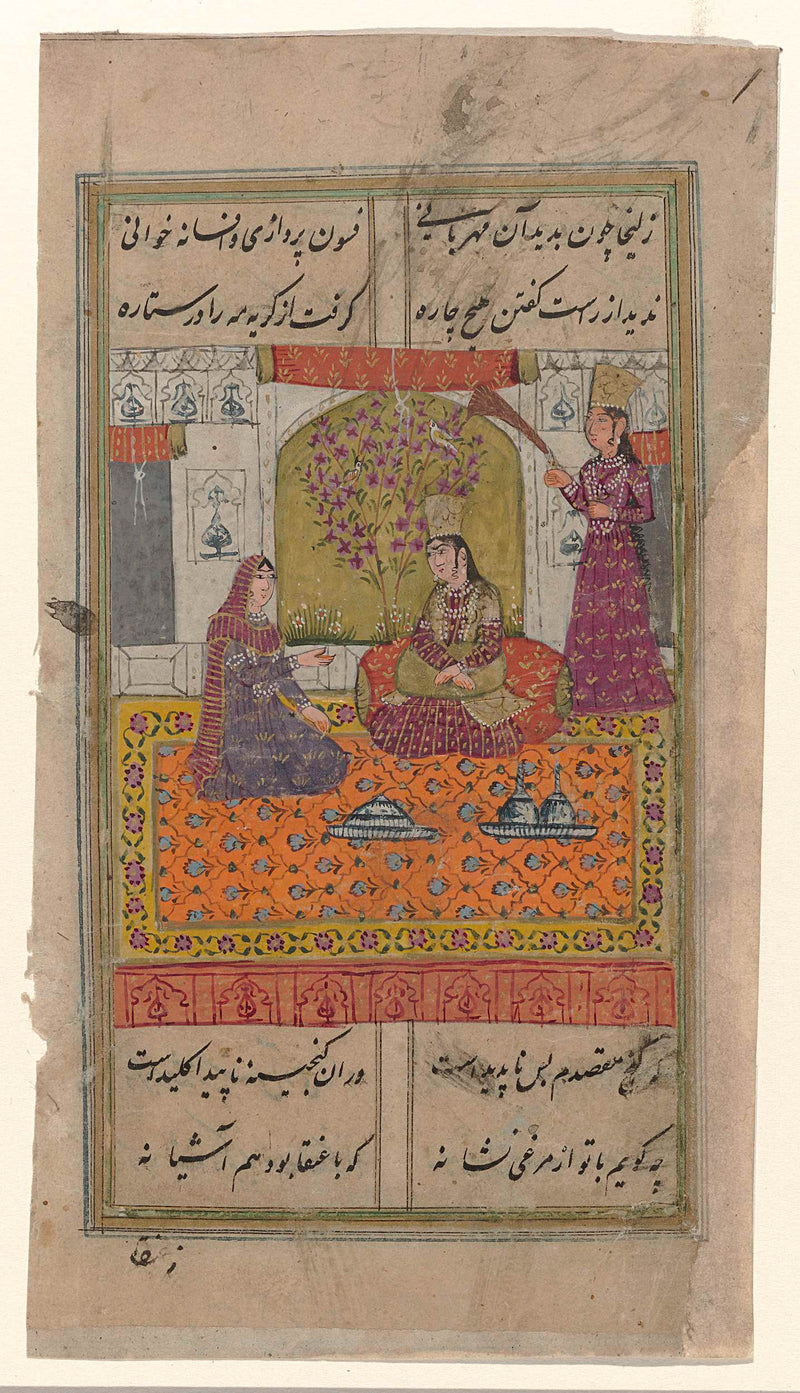 زلیخا چون بدید آن مهربانی فسون پردازی و افسانه خوانی
ندید از راست کفتن هیچ چاره کرفت از کریه مه را در ستاره
که کنج مقصدم بس ناپدید است وران کنجینه ناپیدا کلید است
چه کویم با تو از مرغی نشانه که با عنقا بود هم آشیانه
ز عنقا